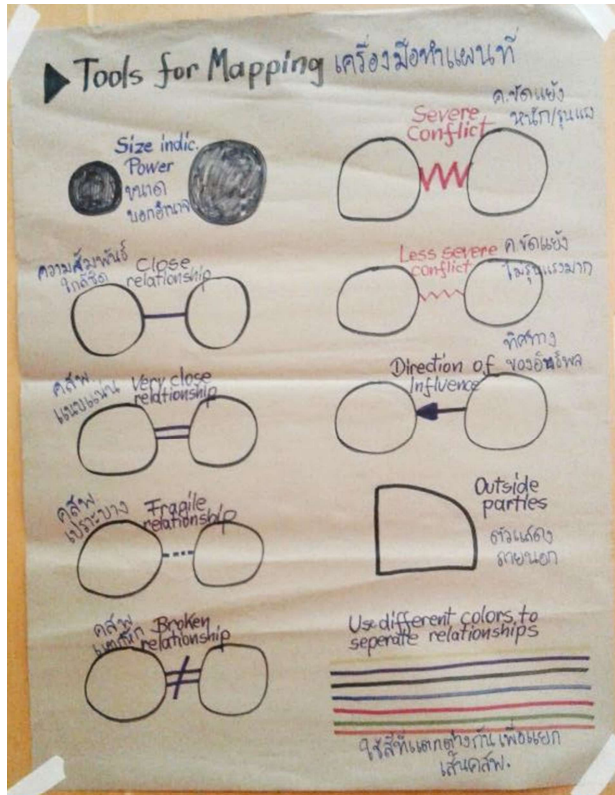 Tools for Mapping เครื่องมือทำแผนที่
Size indic.
Power
ขนาด
บอกอำนาจ
ความสัมพันธ์
ใกล้ชิด
Close
relationship
คสพ
แนบแน่น
Very close
relationship
คสพ
เปราะบาง
Fragile
relationship
คสพ
แตกหัก
Broken
relationship
Severe
conflict
ค.ขัดแย้ง
หนัก/รุนแรง
Less severe
conflict
ค.ขัดแย้ง
ไม่รุนแรงมาก
Direction of
Influence
ทิศทาง
ของอิทธิพล
Outside
parties
ตัวแสดง
ภายนอก
Use different colors to
seperate relationships
ใช้สีที่แตกต่างกันเพื่อแยก
เส้นคสพ.